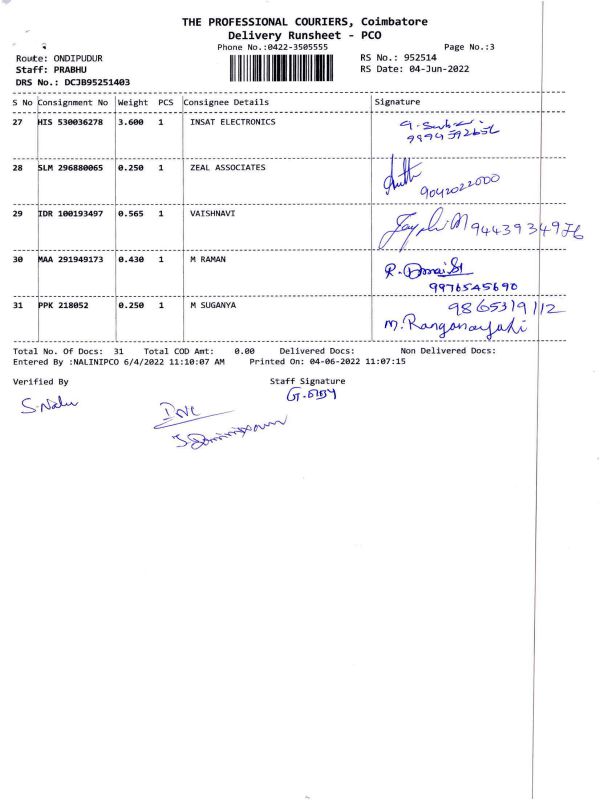 THE PROFESSIONAL COURIERS, Coimbatore
Delivery Runsheet - PCO
Phone No.:0422-3505555 Page No.:3
Route: ONDIPUDUR RS No.: 952514
Staff: PRABHU RS Date: 04-Jun-2022
DRS No.: DCJB95251403
S No Consignment No Weight PCS Consignee Details Signature
27 HIS 530036278 3.600 1 INSAT ELECTRONICS
28 SLM 296880065 0.250 1 ZEAL ASSOCIATES
9042022000
29 IDR 100193497 0.565 1 VAISHNAVI
9443934976
30 MAA 291949173 0.430 1 M RAMAN
9976545690
31 PPK 218052 0.250 1 M SUGANYA 9865319112
M. Ranganayaki
Total No. Of Docs: 31 Total COD Amt: 0.00 Delivered Docs: Non Delivered Docs:
Entered By :NALINIPCO 6/4/2022 11:10:07 AM Printed On: 04-06-2022 11:07:15
Verified By Staff Signature